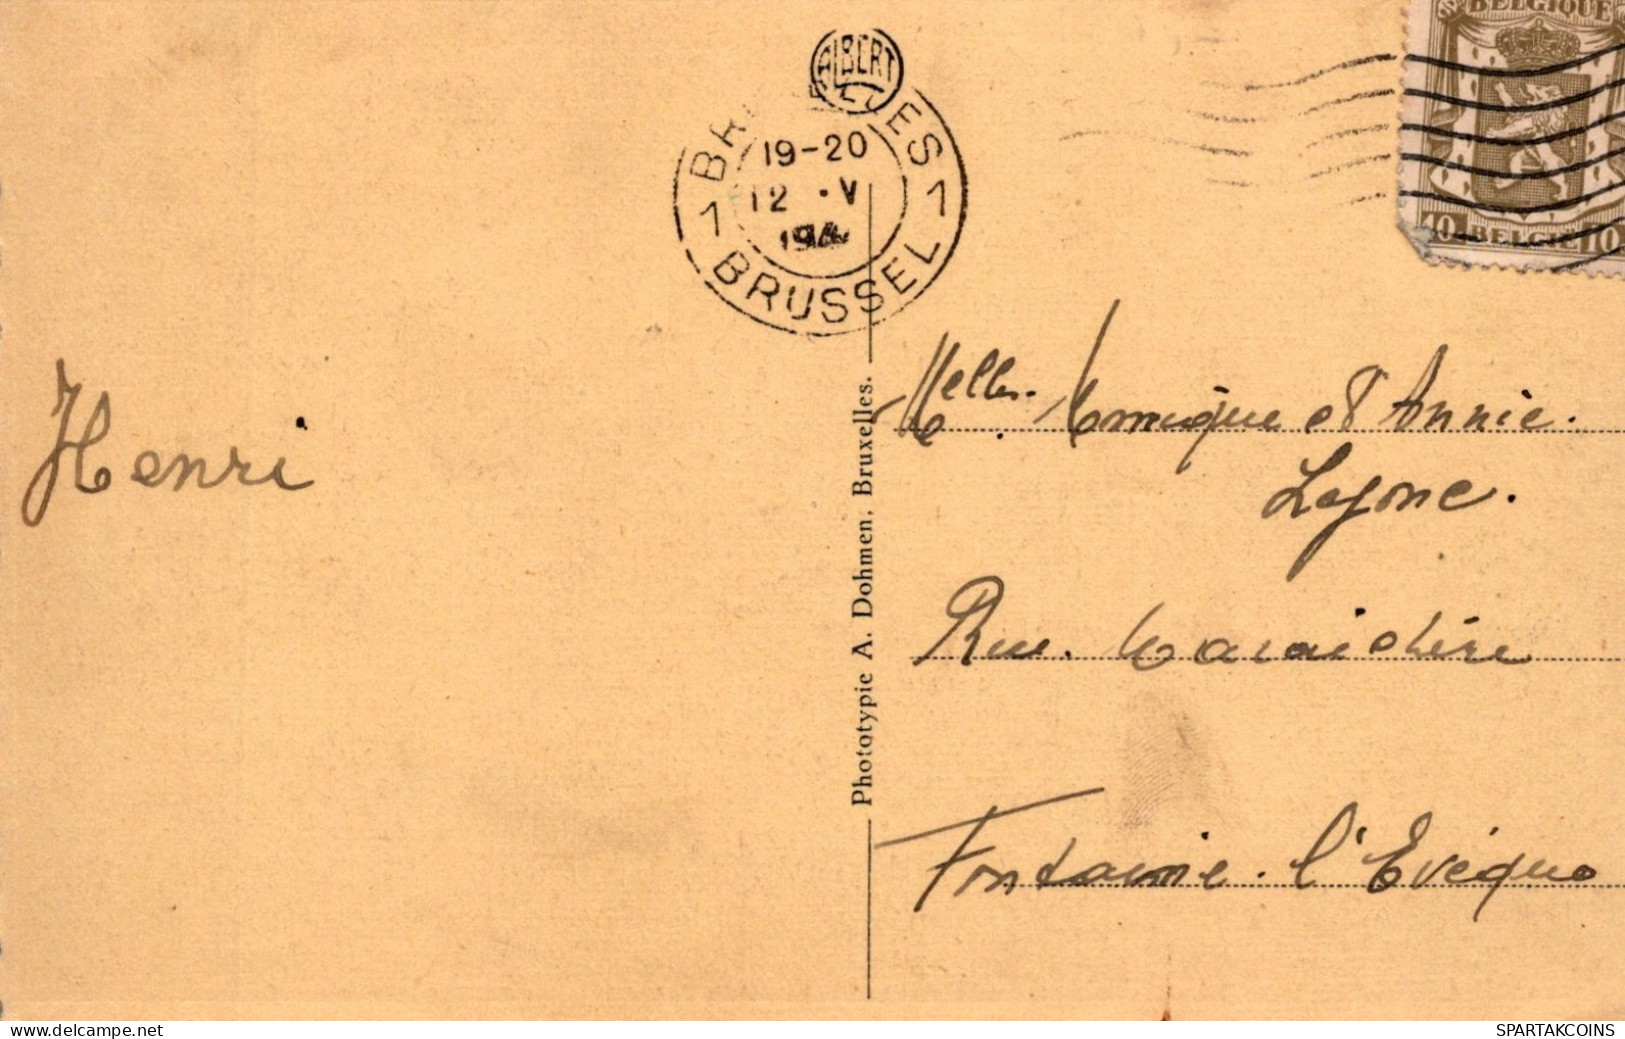 BELGIQUE
ALBERT
19-20
12 · V
1 BRUSSEL 1
10 BELGIE 10
Henri
Melles. Monique et Annie.
Rue. Maraichère
Fontaine. l'Evêque
Phototypie A. Dohmen. Bruxelles.
www.delcampe.net
SPARTAKCOINS